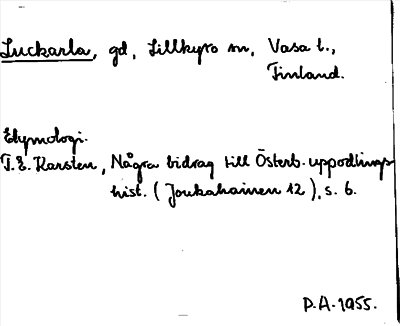 Luckarla, gd, Lillkyro sn, Vasa l.,
Finland.
Etymologi.
T.E. Karsten, Några bidrag till Österb. uppodlings-
hist. (Joukahainen 12), s. 6.
P.A. 1955.